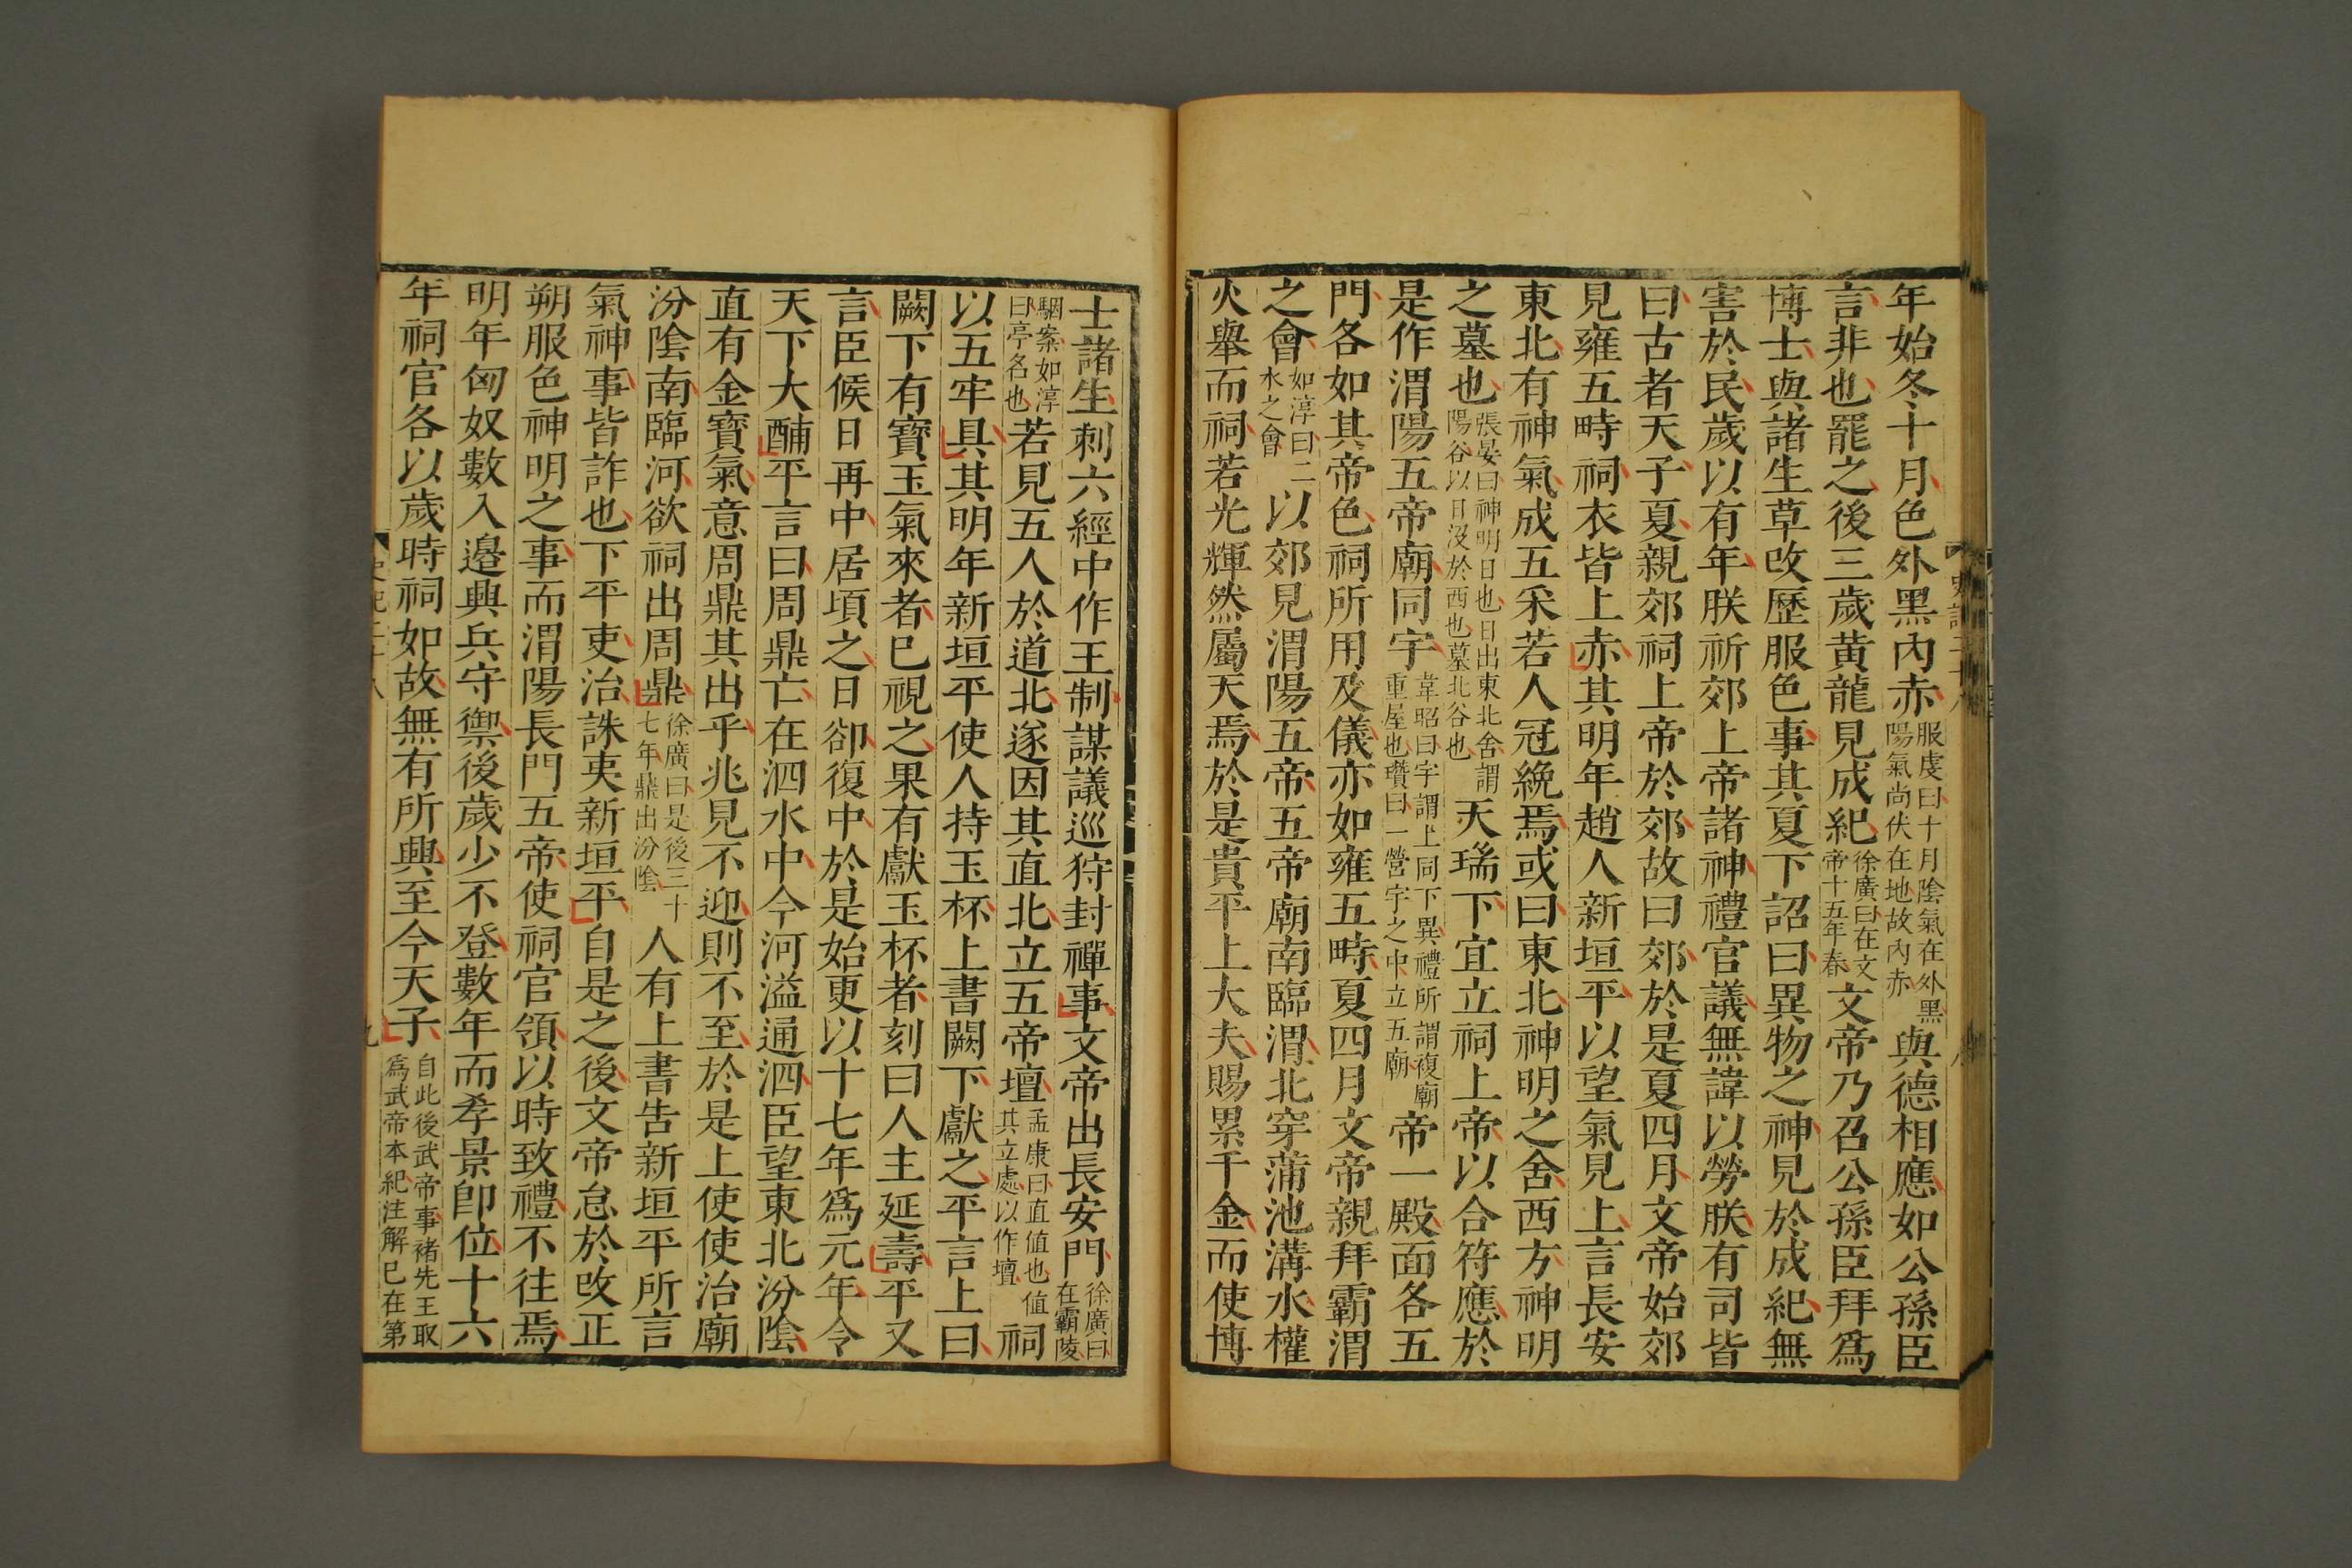 年始冬十月色外黑內赤服虔曰十月陰氣在外黑陽氣尚伏在地故內赤與德相應如公孫臣
言非也罷之後三歲黃龍見成紀徐廣曰在文帝十五年春文帝乃召公孫臣拜爲
博士與諸生草改歷服色事其夏下詔曰異物之神見於成紀無
害於民歲以有年朕祈郊上帝諸神禮官議無諱以勞朕有司皆
曰古者天子夏親郊祠上帝於郊故曰郊於是夏四月文帝始郊
見雍五畤祠衣皆上赤其明年趙人新垣平以望氣見上言長安
東北有神氣成五采若人冠絻焉或曰東北神明之舍西方神明
之墓也張晏曰神明日也日出東北舍謂陽谷以日沒於西也墓北谷也天瑞下宜立祠上帝以合符應於
是作渭陽五帝廟同宇韋昭曰宇謂上同下異禮所謂複廟重屋也瓚曰一營宇之中立五廟帝一殿面各五
門各如其帝色祠所用及儀亦如雍五畤夏四月文帝親拜霸渭
之會如淳曰二水之會以郊見渭陽五帝五帝廟南臨渭北穿蒲池溝水權
火舉而祠若光輝然屬天焉於是貴平上大夫賜累千金而使博
士諸生刺六經中作王制謀議巡狩封禪事文帝出長安門徐廣曰在霸陵
駰案如淳曰亭名也若見五人於道北遂因其直北立五帝壇孟康曰直値也値其立處以作壇祠
以五牢具其明年新垣平使人持玉杯上書闕下獻之平言上曰
闕下有寶玉氣來者已視之果有獻玉杯者刻曰人主延壽平又
言臣候日再中居頃之日卻復中於是始更以十七年爲元年令
天下大酺平言曰周鼎亡在泗水中今河溢通泗臣望東北汾陰
直有金寶氣意周鼎其出乎兆見不迎則不至於是上使使治廟
汾陰南臨河欲祠出周鼎徐廣曰是後三十七年鼎出汾陰人有上書告新垣平所言
氣神事皆詐也下平吏治誅夷新垣平自是之後文帝怠於改正
朔服色神明之事而渭陽長門五帝使祠官領以時致禮不往焉
明年匈奴數入邊興兵守禦後歲少不登數年而孝景卽位十六
年祠官各以歲時祠如故無有所興至今天子自此後武帝事褚先王取爲武帝本紀注解已在第